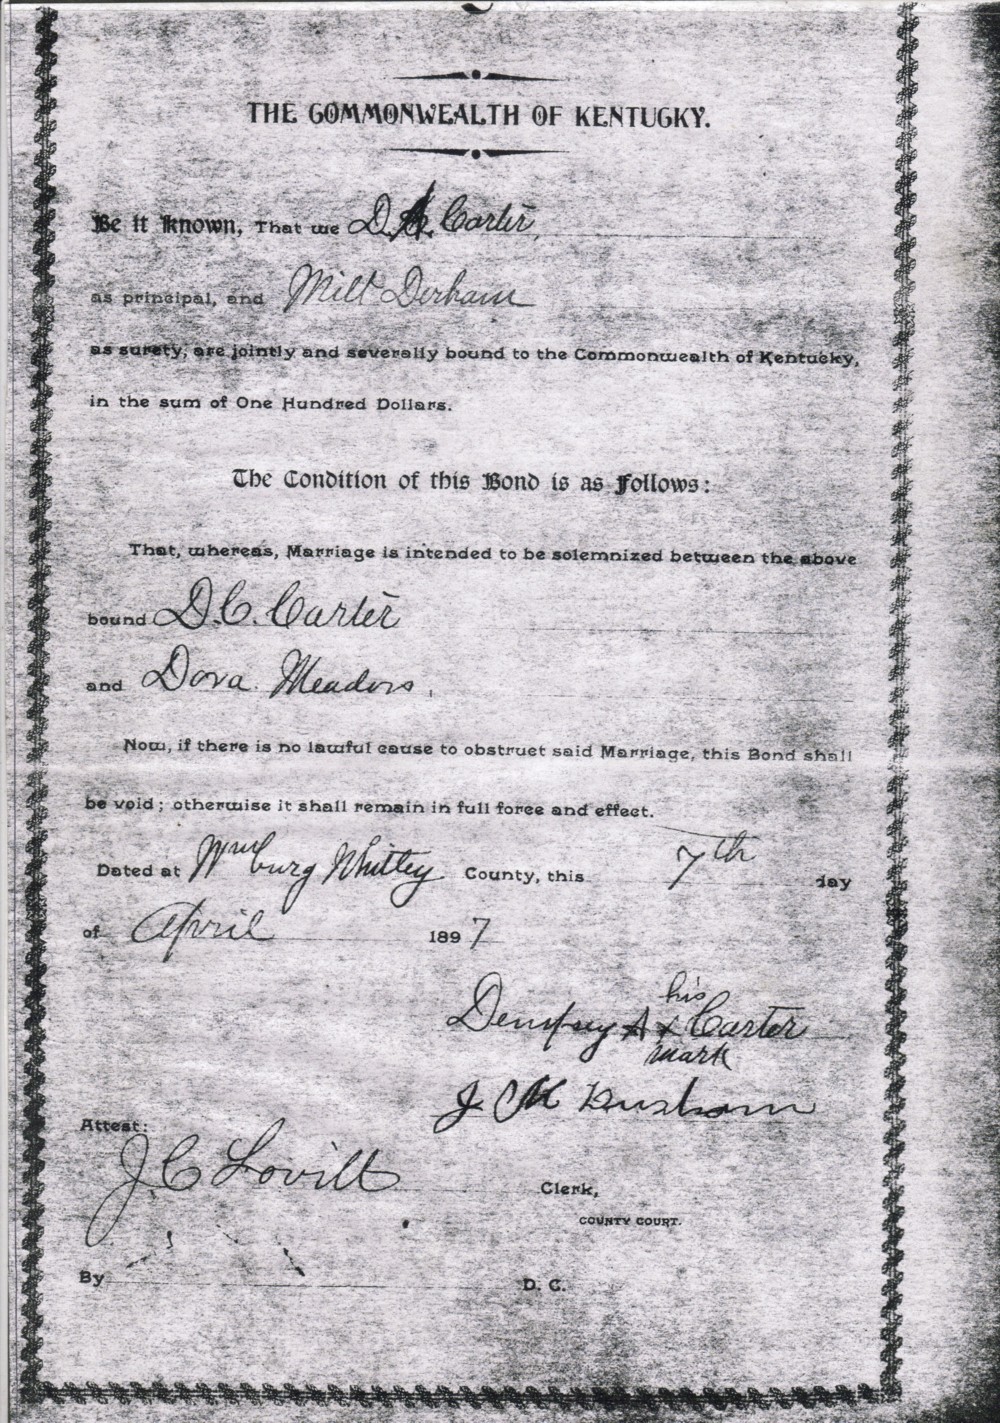 THE COMMONWEALTH OF KENTUCKY.
Be it Known, That we D. A. Carter,
as principal, and Milt Derham
as surety, are jointly and severally bound to the Commonwealth of Kentucky,
in the sum of One Hundred Dollars.
The Condition of this Bond is as Follows:
That, whereas, Marriage is intended to be solemnized between the above
bound D. C. Carter
and Dova Meadors,
Now, if there is no lawful cause to obstruct said Marriage, this Bond shall
be void; otherwise it shall remain in full force and effect.
Dated at Wmburg Whitley County, this 7th day
of April 1897
his
Dempsey A x Carter
mark
J M
Attest:
J C Lovitt Clerk,
COUNTY COURT.
By D. C.